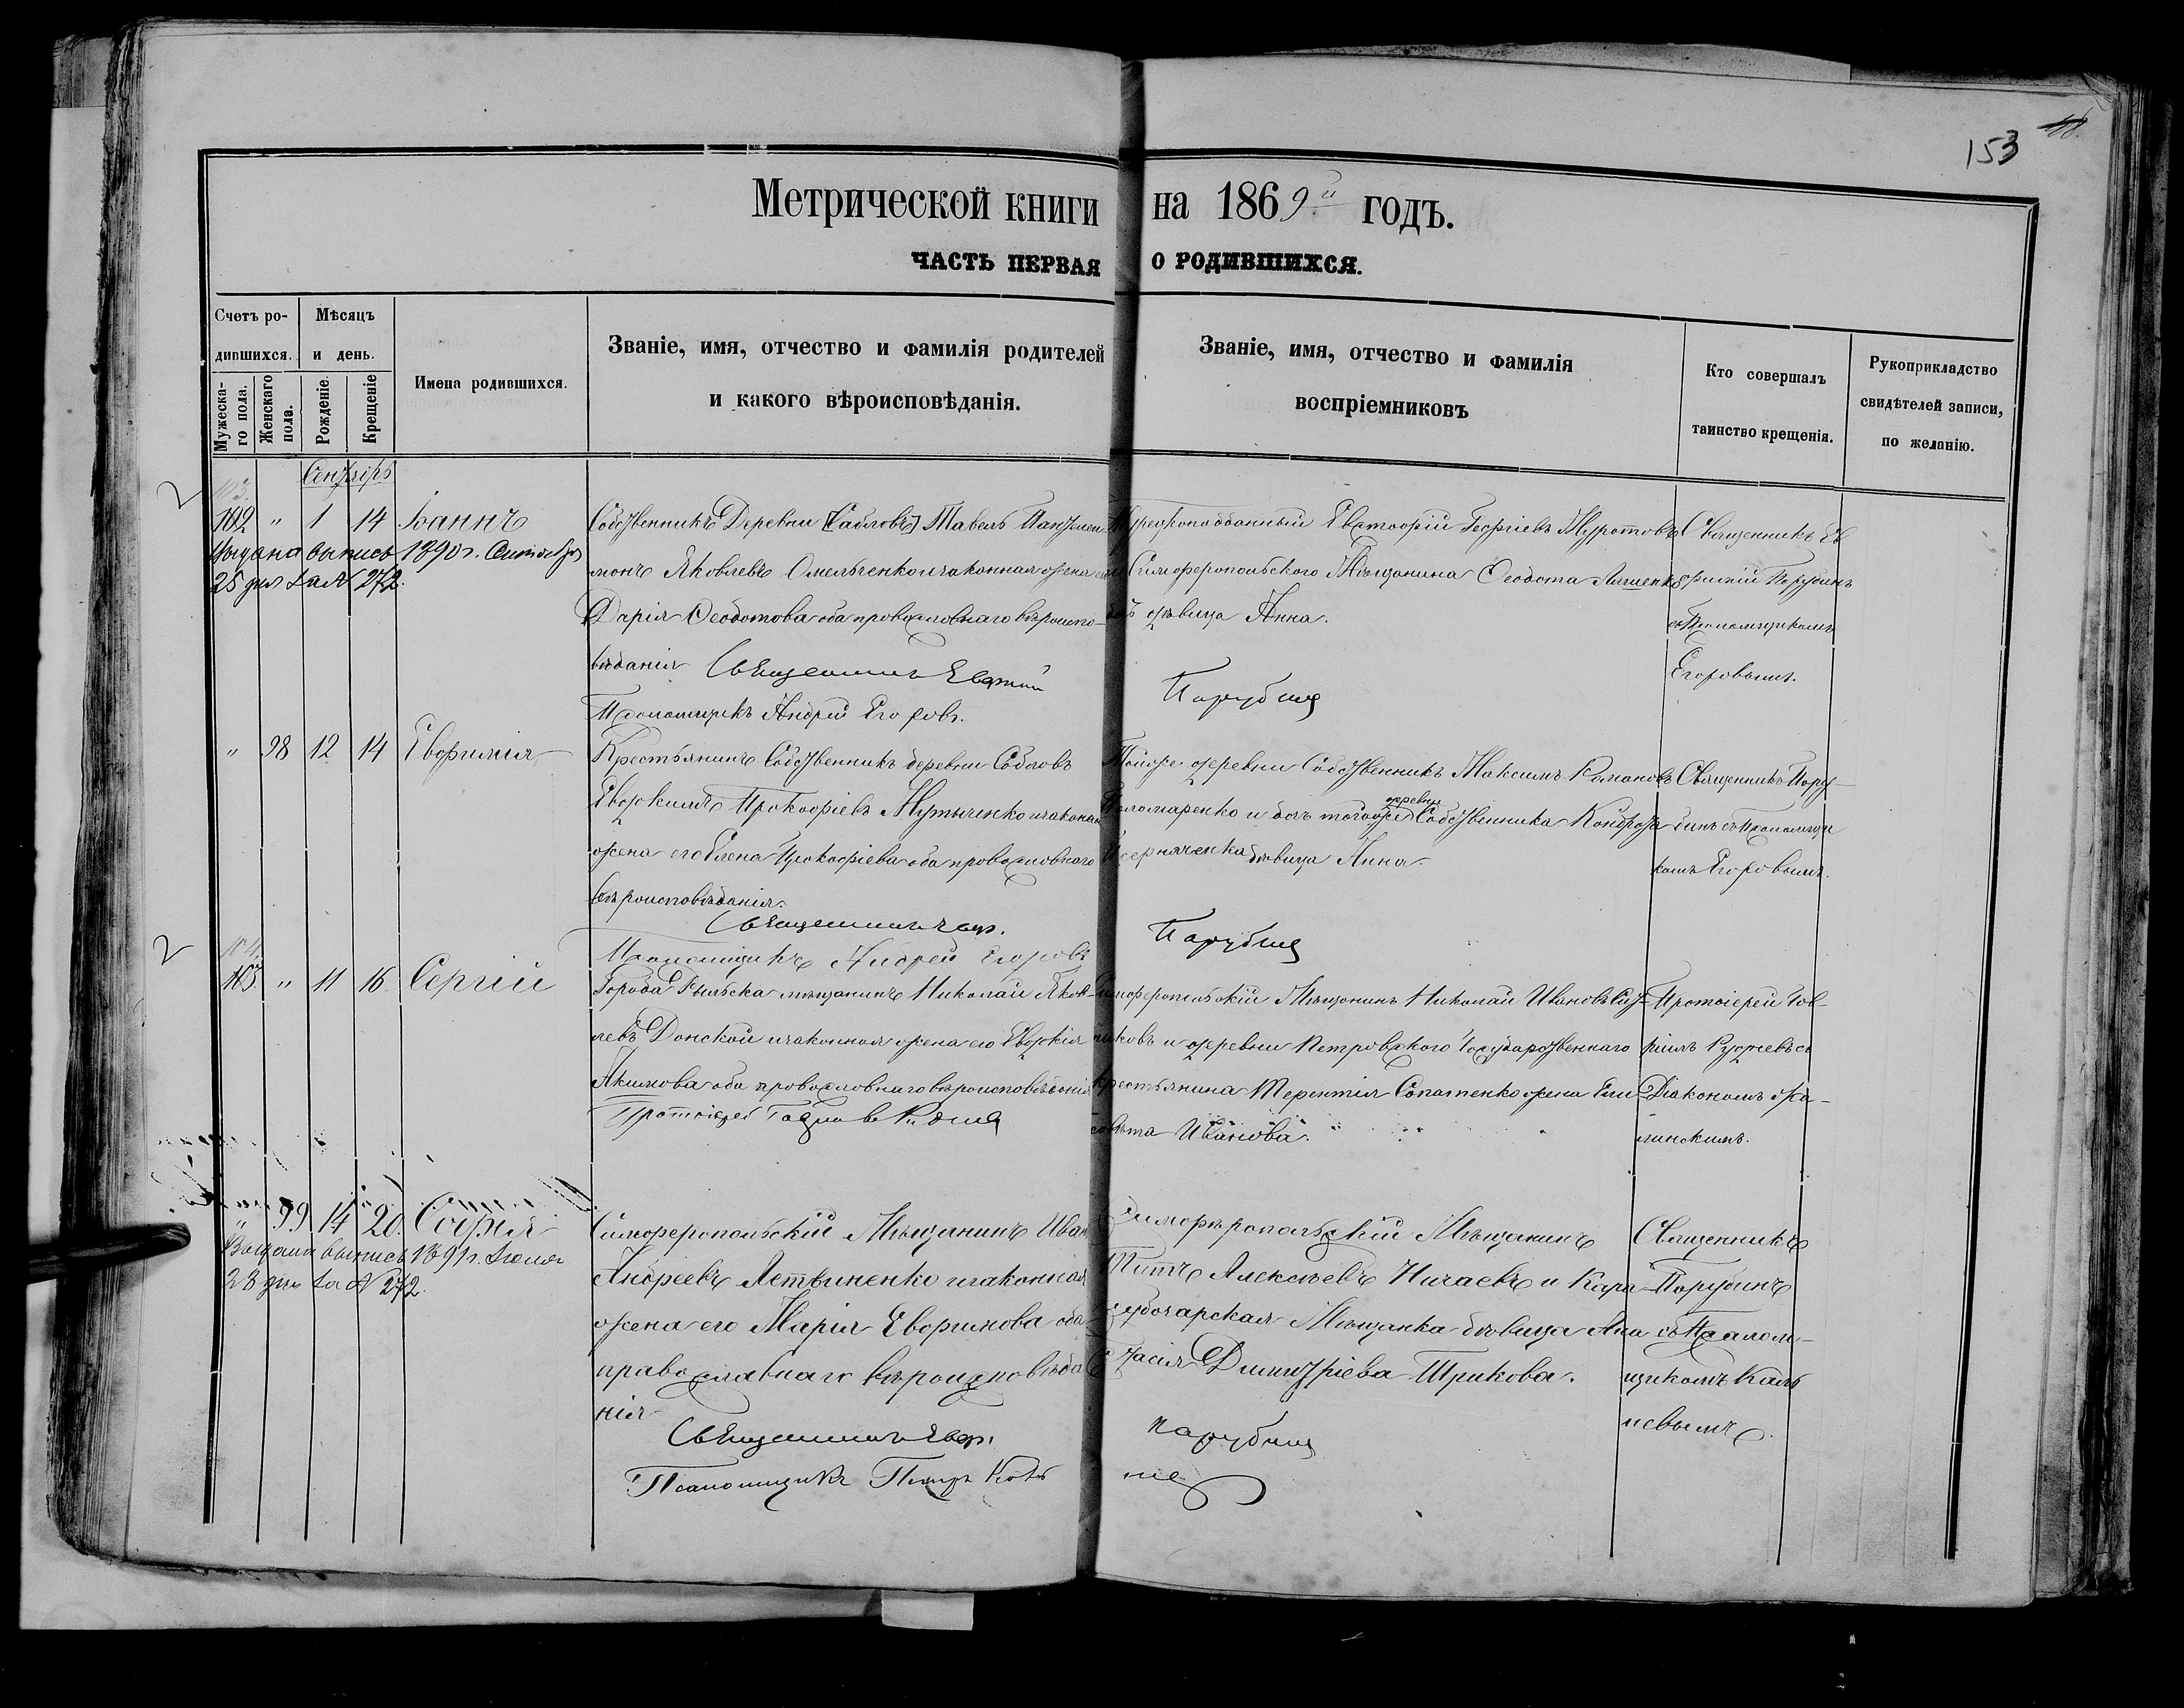 153
Метрической книги на 1869й годъ.
ЧАСТЬ ПЕРВАЯ О РОДИВШИХСЯ.
Счетъ ро-
дившихся.
Мѣсяцъ
и день.
Мужеска-
го пола.
Женскаго
пола.
Рожденіе.
Крещеніе
Имена родившихся.
Званіе, имя, отчество и фамилія родителей
и какого вѣроисповѣданія.
Званіе, имя, отчество и фамилія
воспріемниковъ
Кто совершалъ
таинство крещенія.
Рукоприкладство
свидѣтелей записи,
по желанію.
Сентябрь
103.
102 " 1 14 Іоаннъ
Выдана выпись 1890 г. Сентября
25 дня за № 272.
Собственникъ Деревни [Сабловъ]
монъ Яковлевъ Омельченко и законная жена его
Дарія Ѳеодотова оба православнаго вѣроиспо-
вѣданія Священникъ Евгений
Псаломщикъ Андрей Егоровъ.
Турецкоподданный Георгіевъ Муратовъ
Симферопольского Мѣщанина Ѳеодота Ляшенко
дочь дѣвица Анна.
Парубинъ
Священникъ Ев
геній Парубинъ
съ Псаломщикомъ
Егоровымъ.
" 98 12 14 Евфимія
Крестьянинъ Собственникъ деревни Сабловъ
Евдокимъ Прокофіевъ и законная
жена его Елена Прокофіева оба православнаго
вѣроисповѣданія.
Священникъ Евг.
Псаломщикъ Андрей Егоровъ
Тойже деревни Собственникъ Максимъ Романовъ
Паломаренко и дочь тойже деревни Собственника Кондрата
дѣвица Анна.
Парубинъ
Священникъ Пару-
бинъ съ Псаломщи
комъ Егоровымъ.
104.
103 " 11 16 Сергій
Города Рыльска мѣщанинъ Николай Яков-
левъ Донской и законная жена его Евдокія
Акимова оба православнаго вѣроисповѣданія
Протоіерей Гавріилъ Руднев
Симферопольскій Мѣщанинъ Николай Ивановъ
и деревни Петровского Государственнаго
крестьянина Терентія Сопатенко жена Ели
савета Иванова.
Протоіерей Гав-
ріилъ Рудневъ съ
Діакономъ
" 99 14 20. Софія
Выдана выпись 1891 г. Іюля
23 дня за № 272.
Симферопольскій Мѣщанинъ Иван
Андреевъ Летвиненко и законная
жена его Марія Евфимова оба
православнаго вѣроисповѣда
нія
Священникъ Евг.
Псаломщикъ Петръ
Симферопольскій Мѣщанинъ
Титъ Алексѣевъ Ничаевъ и Кара
субазарская Мѣщанка дѣвица Ана
стасія Димитріева
Парубинъ
Священникъ
Парубинъ
съ Псалом-
щикомъ